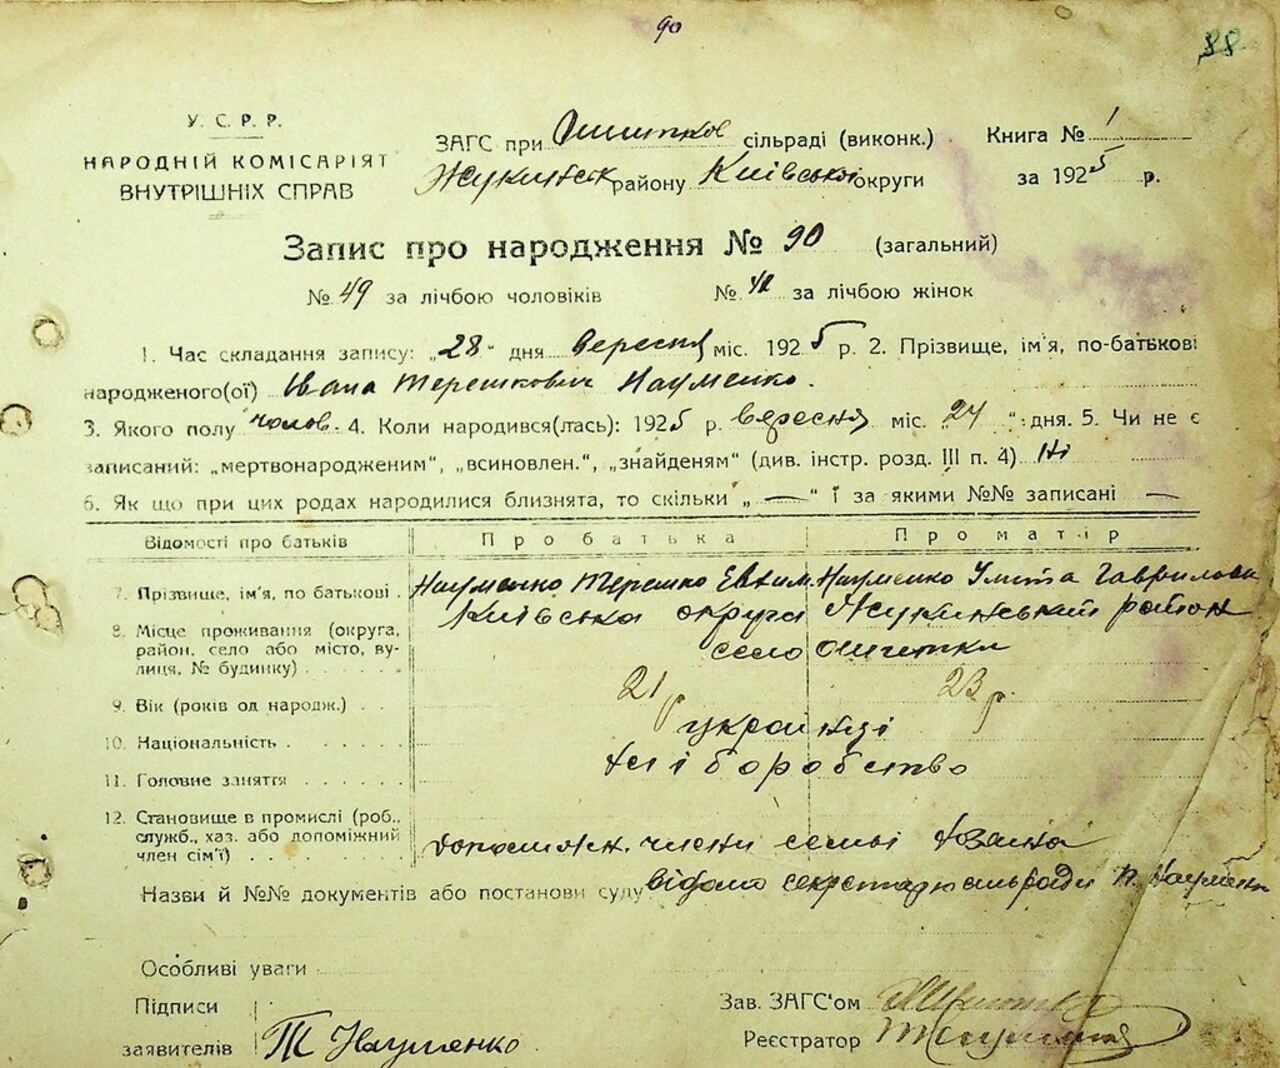 90
88
У. С. Р. Р.
НАРОДНІЙ КОМІСАРІЯТ
ВНУТРІШНІХ СПРАВ
ЗАГС при Ошитков сільраді (виконк.) Книга № 1
Жукинськ району Київської округи за 1925 р.
Запис про народження № 90 (загальний)
№ 49 за лічбою чоловіків № 41 за лічбою жінок
1. Час складання запису: „28" дня вересня міс. 1925 р. 2. Прізвище, ім'я, по-батькові
народженого(ої) Івана Терешкович Науменко.
3. Якого полу чолов. 4. Коли народився(лась): 1925 р. вересня міс. „24" дня. 5. Чи не є
записаний: „мертвонародженим", „всиновлен.", „знайденям" (див. інстр. розд. III п. 4) Ні
6. Як що при цих родах народилися близнята, то скільки „—" ї за якими №№ записані —
Відомості про батьків Про батька Про матір
7. Прізвище, ім'я, по батькові . Науменко Терешко Евхим. Науменко Улита Гаврилова
8. Місце проживання (округа, район, село або місто, вулиця, № будинку) Київська округа Жукинський район
село Ошитки
9. Вік (років од народж.) . . 21 р 23 р.
10. Національність . українці
11. Головне заняття хліборобство
12. Становище в промислі (роб., служб., хаз. або допоміжний член сім'ї) допоміжн. члени семьі хозаина
Назви й №№ документів або постанови суду відомо секретарю сільради П. Науменк
Особливі уваги
Підписи
заявителів Т Науменко
Зав. ЗАГС'ом
Реєстратор